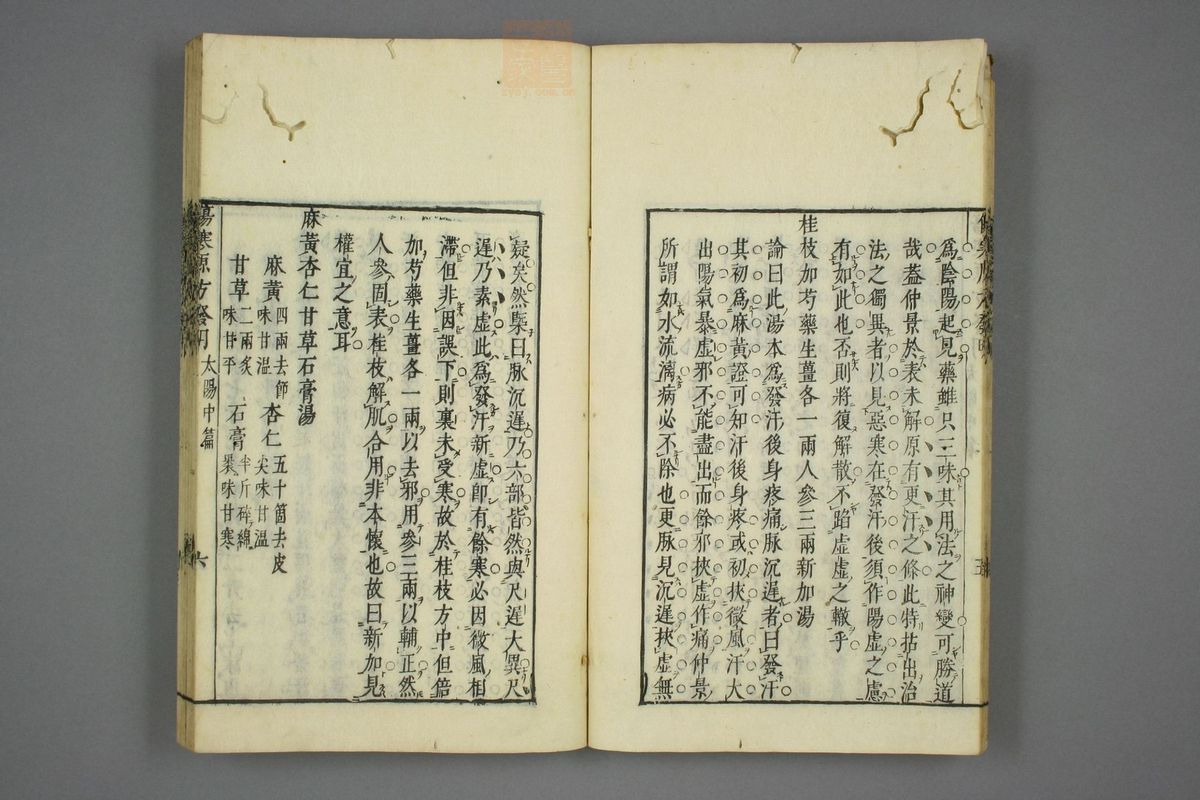 為陰陽起見藥雖只三味其用法之神變可勝道
哉蓋仲景於表未解原有更汗之條此特拈出治
法之獨異者以見惡寒在發汗後須作陽虛之慮
有如此也否則將復解散不蹈虛虛之轍乎
桂枝加芍藥生薑各一兩人參三兩新加湯
論曰此湯本為發汗後身疼痛脈沉遲者曰發汗
其初為麻黃證可知汗後身疼或初挾微風汗大
出陽氣暴虛邪不能盡出而餘邪挾虛作痛仲景
所謂如水流漓病必不除也更脈見沉遲挾虛無
疑矣然槩曰脈沉遲乃六部皆然與尺遲大異尺
遲乃素虛此為發汗新虛卽有餘寒必因微風相
滯但非因誤下則裏未受寒故於桂枝方中但倍
加芍藥生薑各一兩以去邪用參三兩以輔正然
人參固表桂枝解肌合用非本懷也故曰新加見
權宜之意耳
麻黃杏仁甘草石膏湯
麻黃四兩去節味甘溫 杏仁五十箇去皮尖味甘溫
甘草二兩炙味甘平 石膏半斤碎綿裹味甘寒
傷寒源方發明 太陽中篇 六
zysj.com.cn